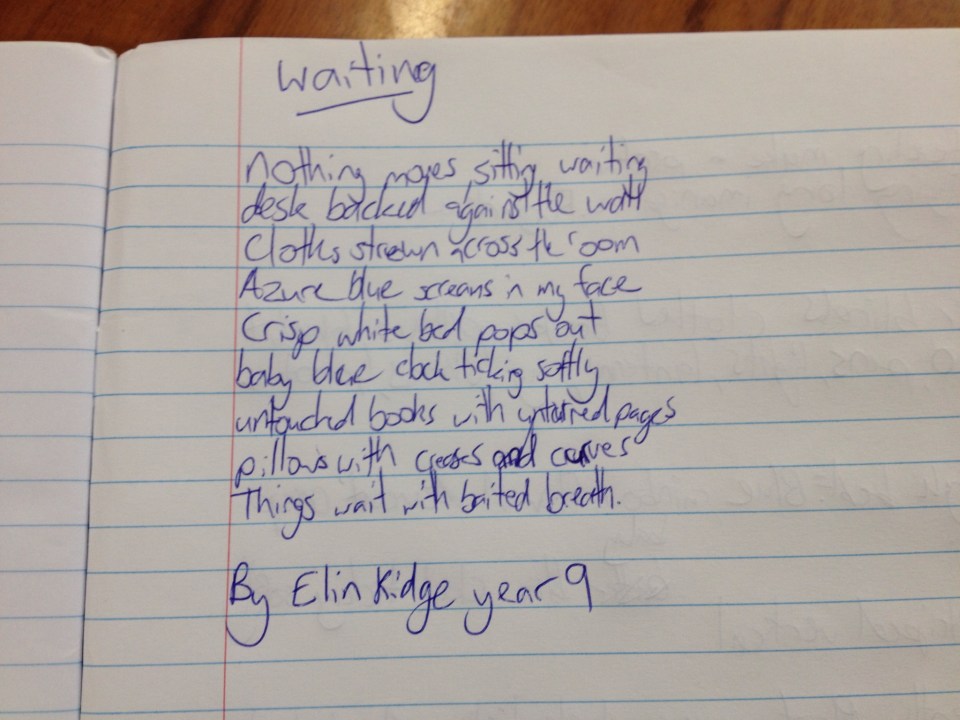 Waiting
Nothing moves sitting waiting
desk backed against the wall
Cloths strewn across the room
Azure blue screams in my face
Crisp white bed pops out
baby blue clock ticking softly
untouched books with unturned pages
pillows with creases and curves
Things wait with baited breath.
By Elin Kidge year 9